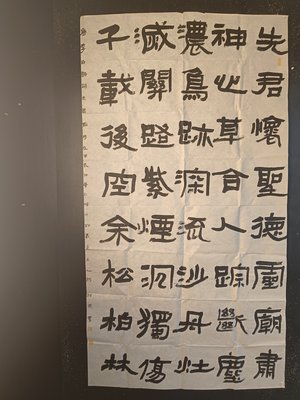 先君懷聖德靈廟肅
神心草合人踪斷塵
濃鳥跡深流沙丹灶
滅關路紫煙沉獨傷
千載後空余松柏林